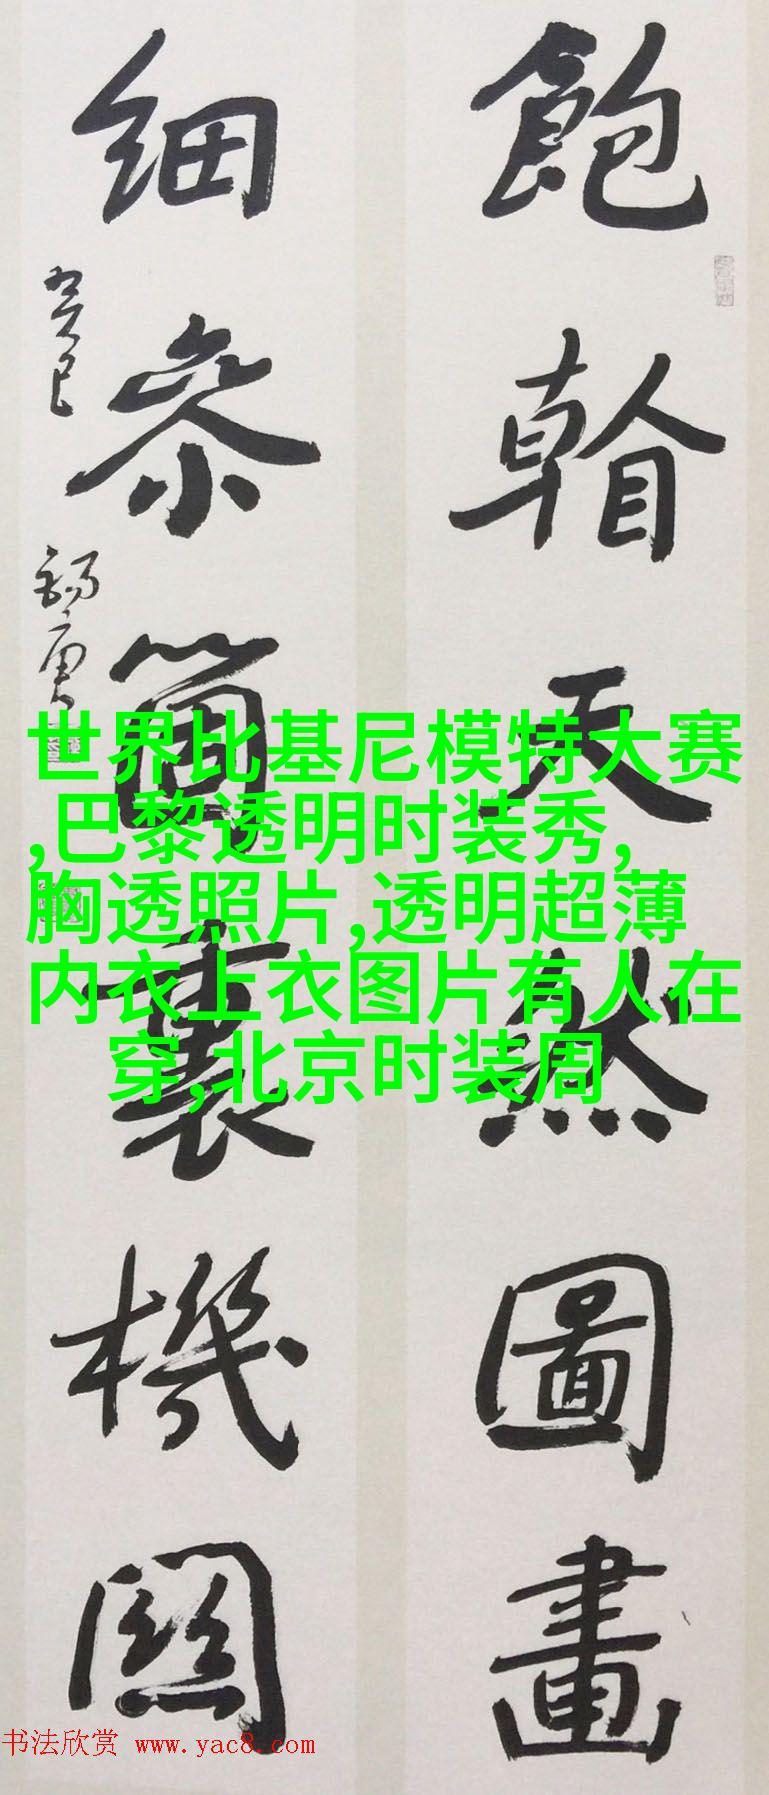 飽翰天然圖畫
細參箇裏機關
癸巳
世界比基尼模特大赛
,巴黎透明时装秀,
胸透照片,透明超薄
内衣上衣图片有人在
穿,北京时装周
书法欣赏 www.yac8.com